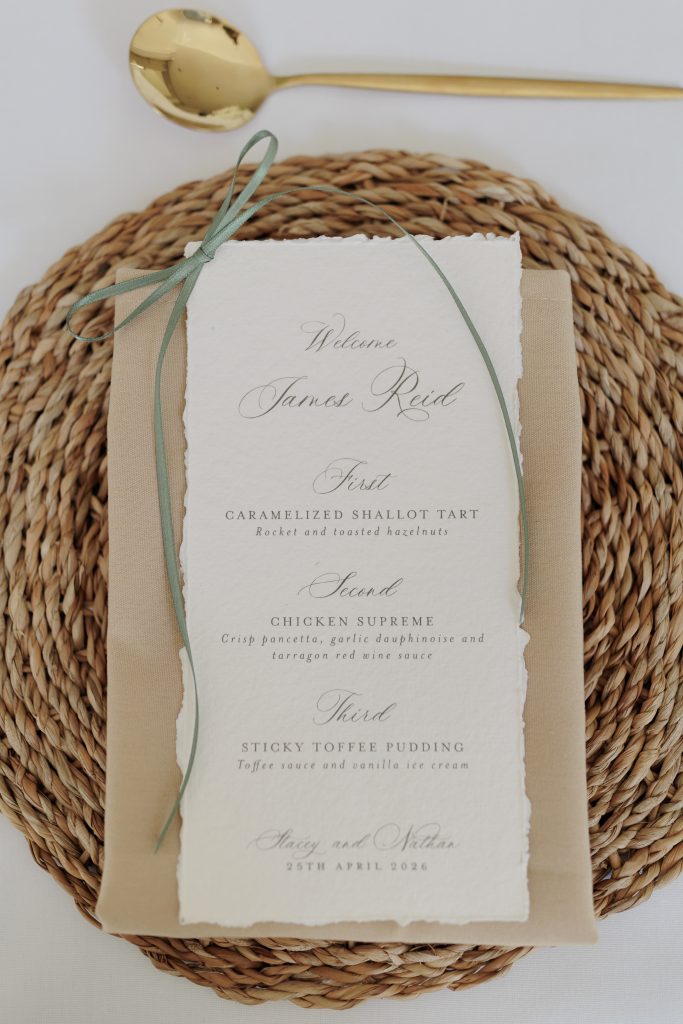 Welcome
James Reid
First
CARAMELIZED SHALLOT TART
Rocket and toasted hazelnuts
Second
CHICKEN SUPREME
Crisp pancetta, garlic dauphinoise and
tarragon red wine sauce
Third
STICKY TOFFEE PUDDING
Toffee sauce and vanilla ice cream
Stacey and Nathan
25TH APRIL 2026